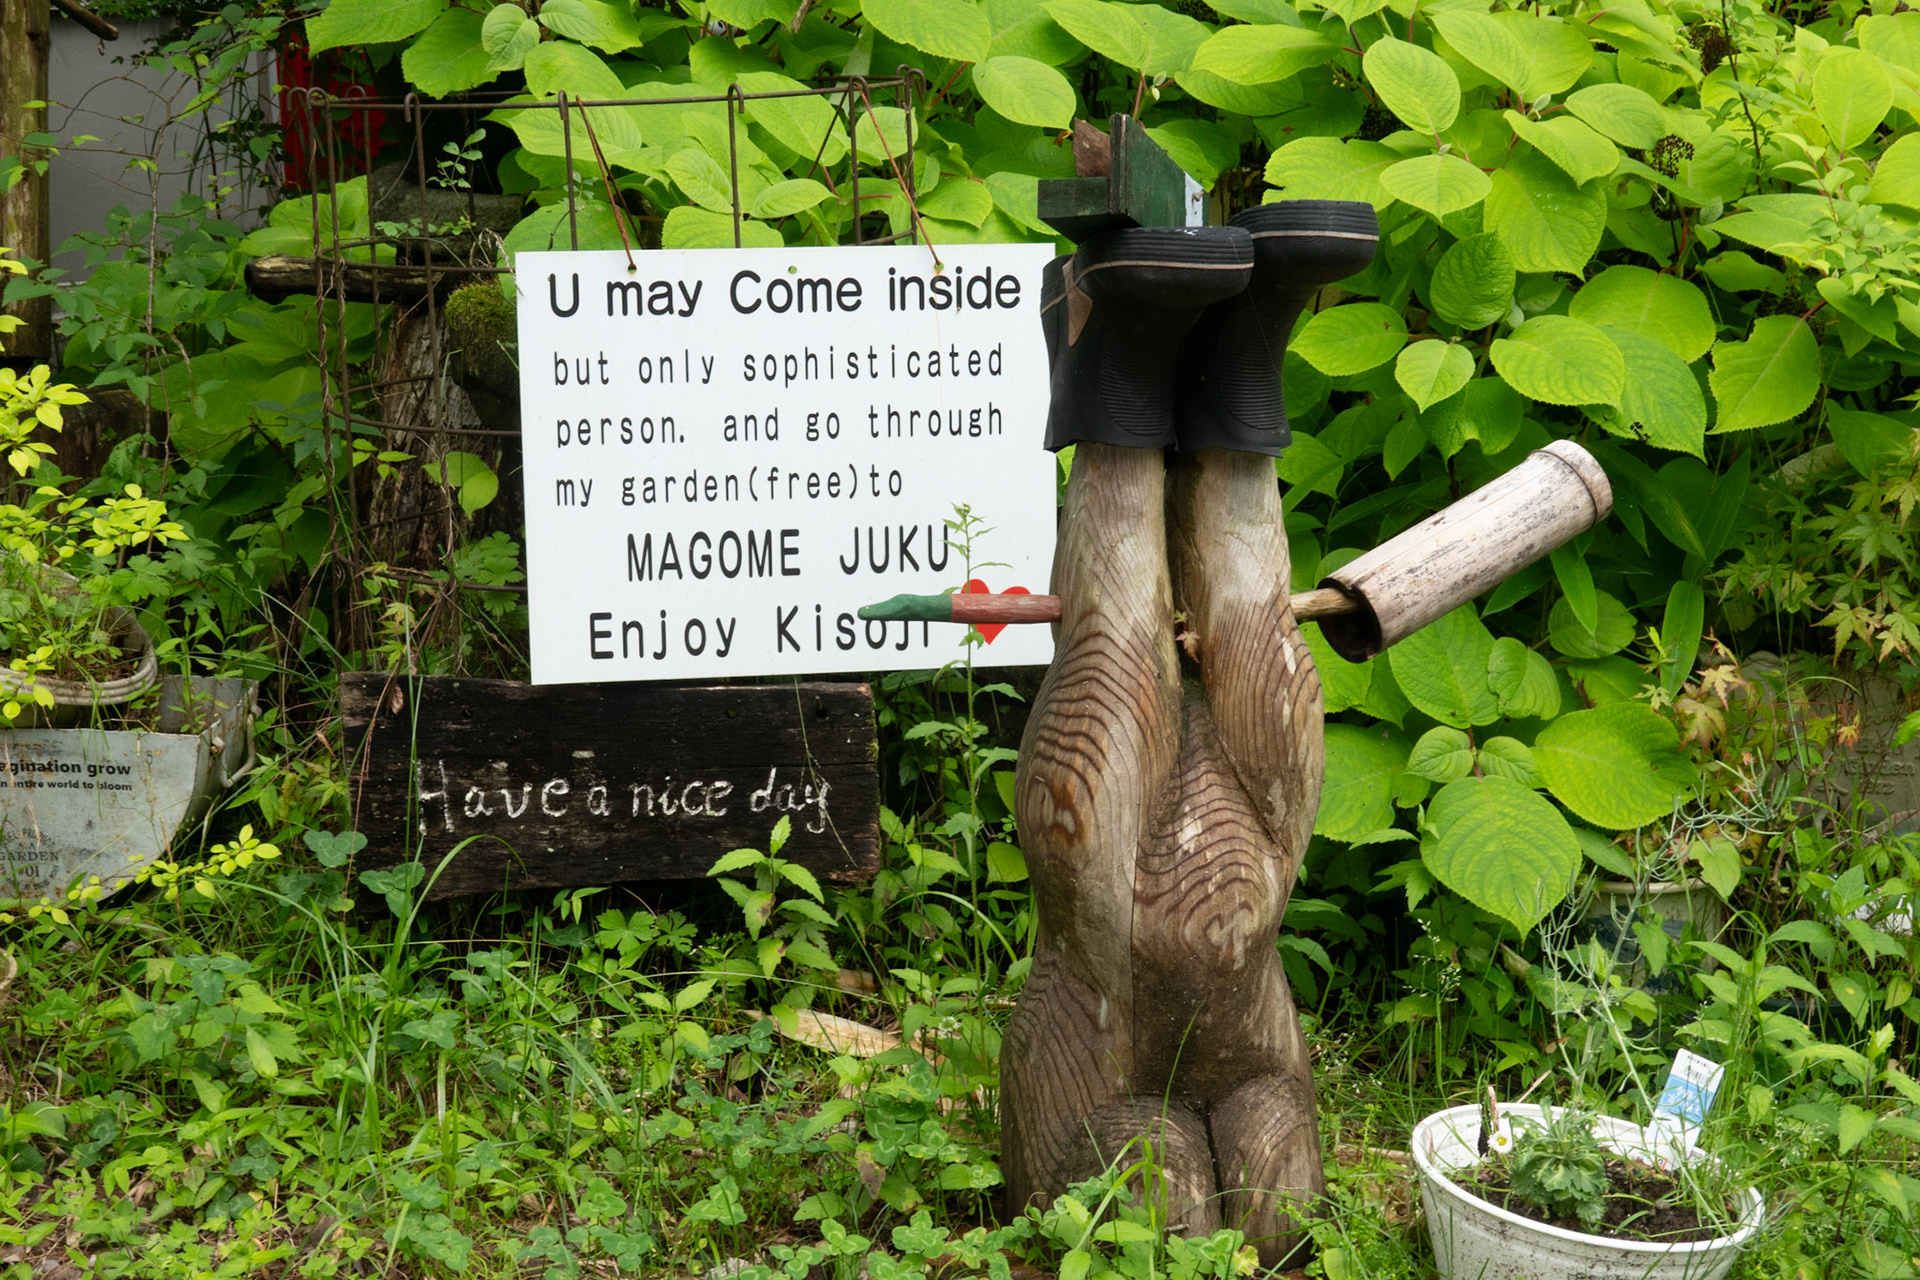 U may Come inside
but only sophisticated
person. and go through
my garden(free)to
MAGOME JUKU
Enjoy Kisoji
Have a nice day
agination grow
n entire world to bloom
GARDEN
#01